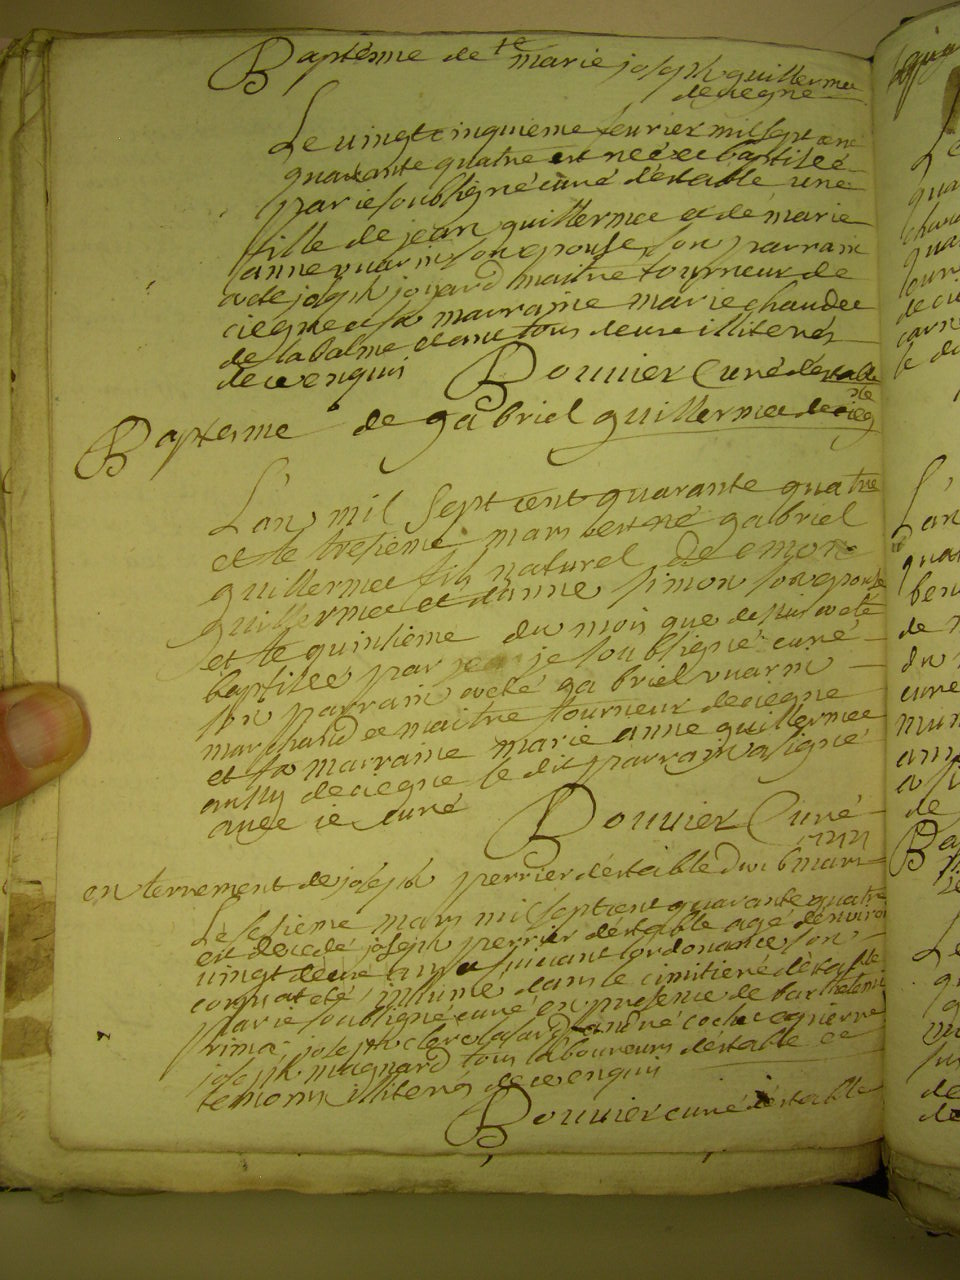 Baptême de marie joseph guillermee
de ciegne
Le vingtcinquieme feurier mil sept cent
quarante quatre est neé et baptiseé
par je soubsigné curé d'estable une
fille de jean guillermee et de marie
anne vuarin son epouse, son parrain
a ete joseph jouard maitre tourneur de
ciegne et sa marraine marie chaudee
de la balme etant tous deux illiterés
de ce enquis Bouuier Curé d'estable
Baptesme de gabriel guillermee de cieg
L'an mil Sept cent quarante quatre
et le tresieme mars est né gabriel
guillermee fils naturel de
guillermee et d'anne simon son epouse
et le quinsieme du mois que dessus a eté
baptisee par je soubsigné curé
son parrain a eté gabriel vuarin
marchand et maitre tourneur de ciegne
et sa marraine marie anne guillermee
aussy de ciegne le dit parrain a signé
auec je curé Bouuier Curé
enterrement de joseph perrier d'estable du 16 mars
Le sesieme mars mil sept cent quarante quatre
est decedé joseph perrier d'estable agé denviron
vingt deux ans suiuant l'ordonance son
corps a eté inhumé dans le cimitiere d'estable
par je soubsigné curé en presence de barthelemi
rima joseph clerc andré coche pierre
joseph magnard tous laboureurs d'estable et
temoins illiterés de ce enquis
Bouuier curé d'estable